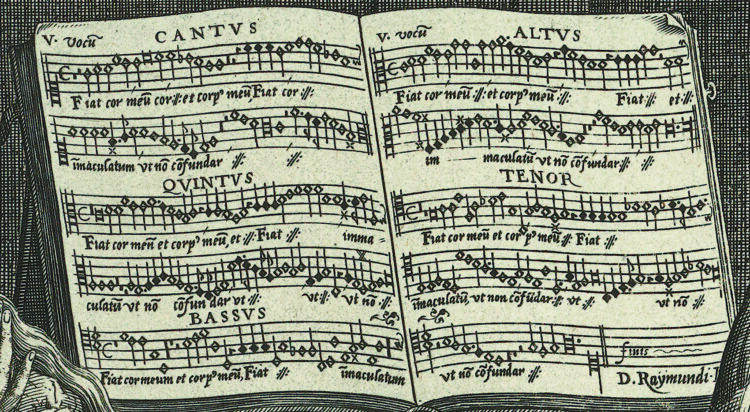 V. vocũ CANTVS
Fiat cor meũ cor :||: et corpꝰ meũ Fiat cor :||:
im̃aculatum vt nõ cõfundar :||: :||:
QVINTVS
Fiat cor meũ et corpꝰ meũ, et :||: Fiat :||: imma =
culatũ vt nõ cõfun dar vt :||: vt :||: vt nõ :||:
BASSVS
Fiat cor meum et corpꝰ meũ, Fiat :||: im̃aculatum
V. vocũ ALTVS
Fiat cor meũ :||: et corpꝰ meũ :||: Fiat :||: et :||:
im maculatũ vt nõ cõfundar :||: :||:
TENOR
Fiat cor meũ et corpꝰ meũ :||: Fiat :||:
im̃aculatũ, vt non cõfũdar :||: vt :||: vt nõ :||:
vt nõ cõfundar :||:
finis
D. Raÿmundi